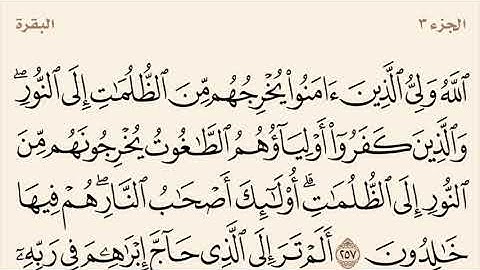 الجزء ٣ البقرة
ٱللَّهُ وَلِيُّ ٱلَّذِينَ ءَامَنُوا۟ يُخْرِجُهُم مِّنَ ٱلظُّلُمَٰتِ إِلَى ٱلنُّورِۖ
وَٱلَّذِينَ كَفَرُوٓا۟ أَوْلِيَآؤُهُمُ ٱلطَّٰغُوتُ يُخْرِجُونَهُم مِّنَ
ٱلنُّورِ إِلَى ٱلظُّلُمَٰتِۗ أُو۟لَٰٓئِكَ أَصْحَٰبُ ٱلنَّارِۖ هُمْ فِيهَا
خَٰلِدُونَ ٢٥٧ أَلَمْ تَرَ إِلَى ٱلَّذِى حَآجَّ إِبْرَٰهِـۧمَ فِى رَبِّهِۦٓ